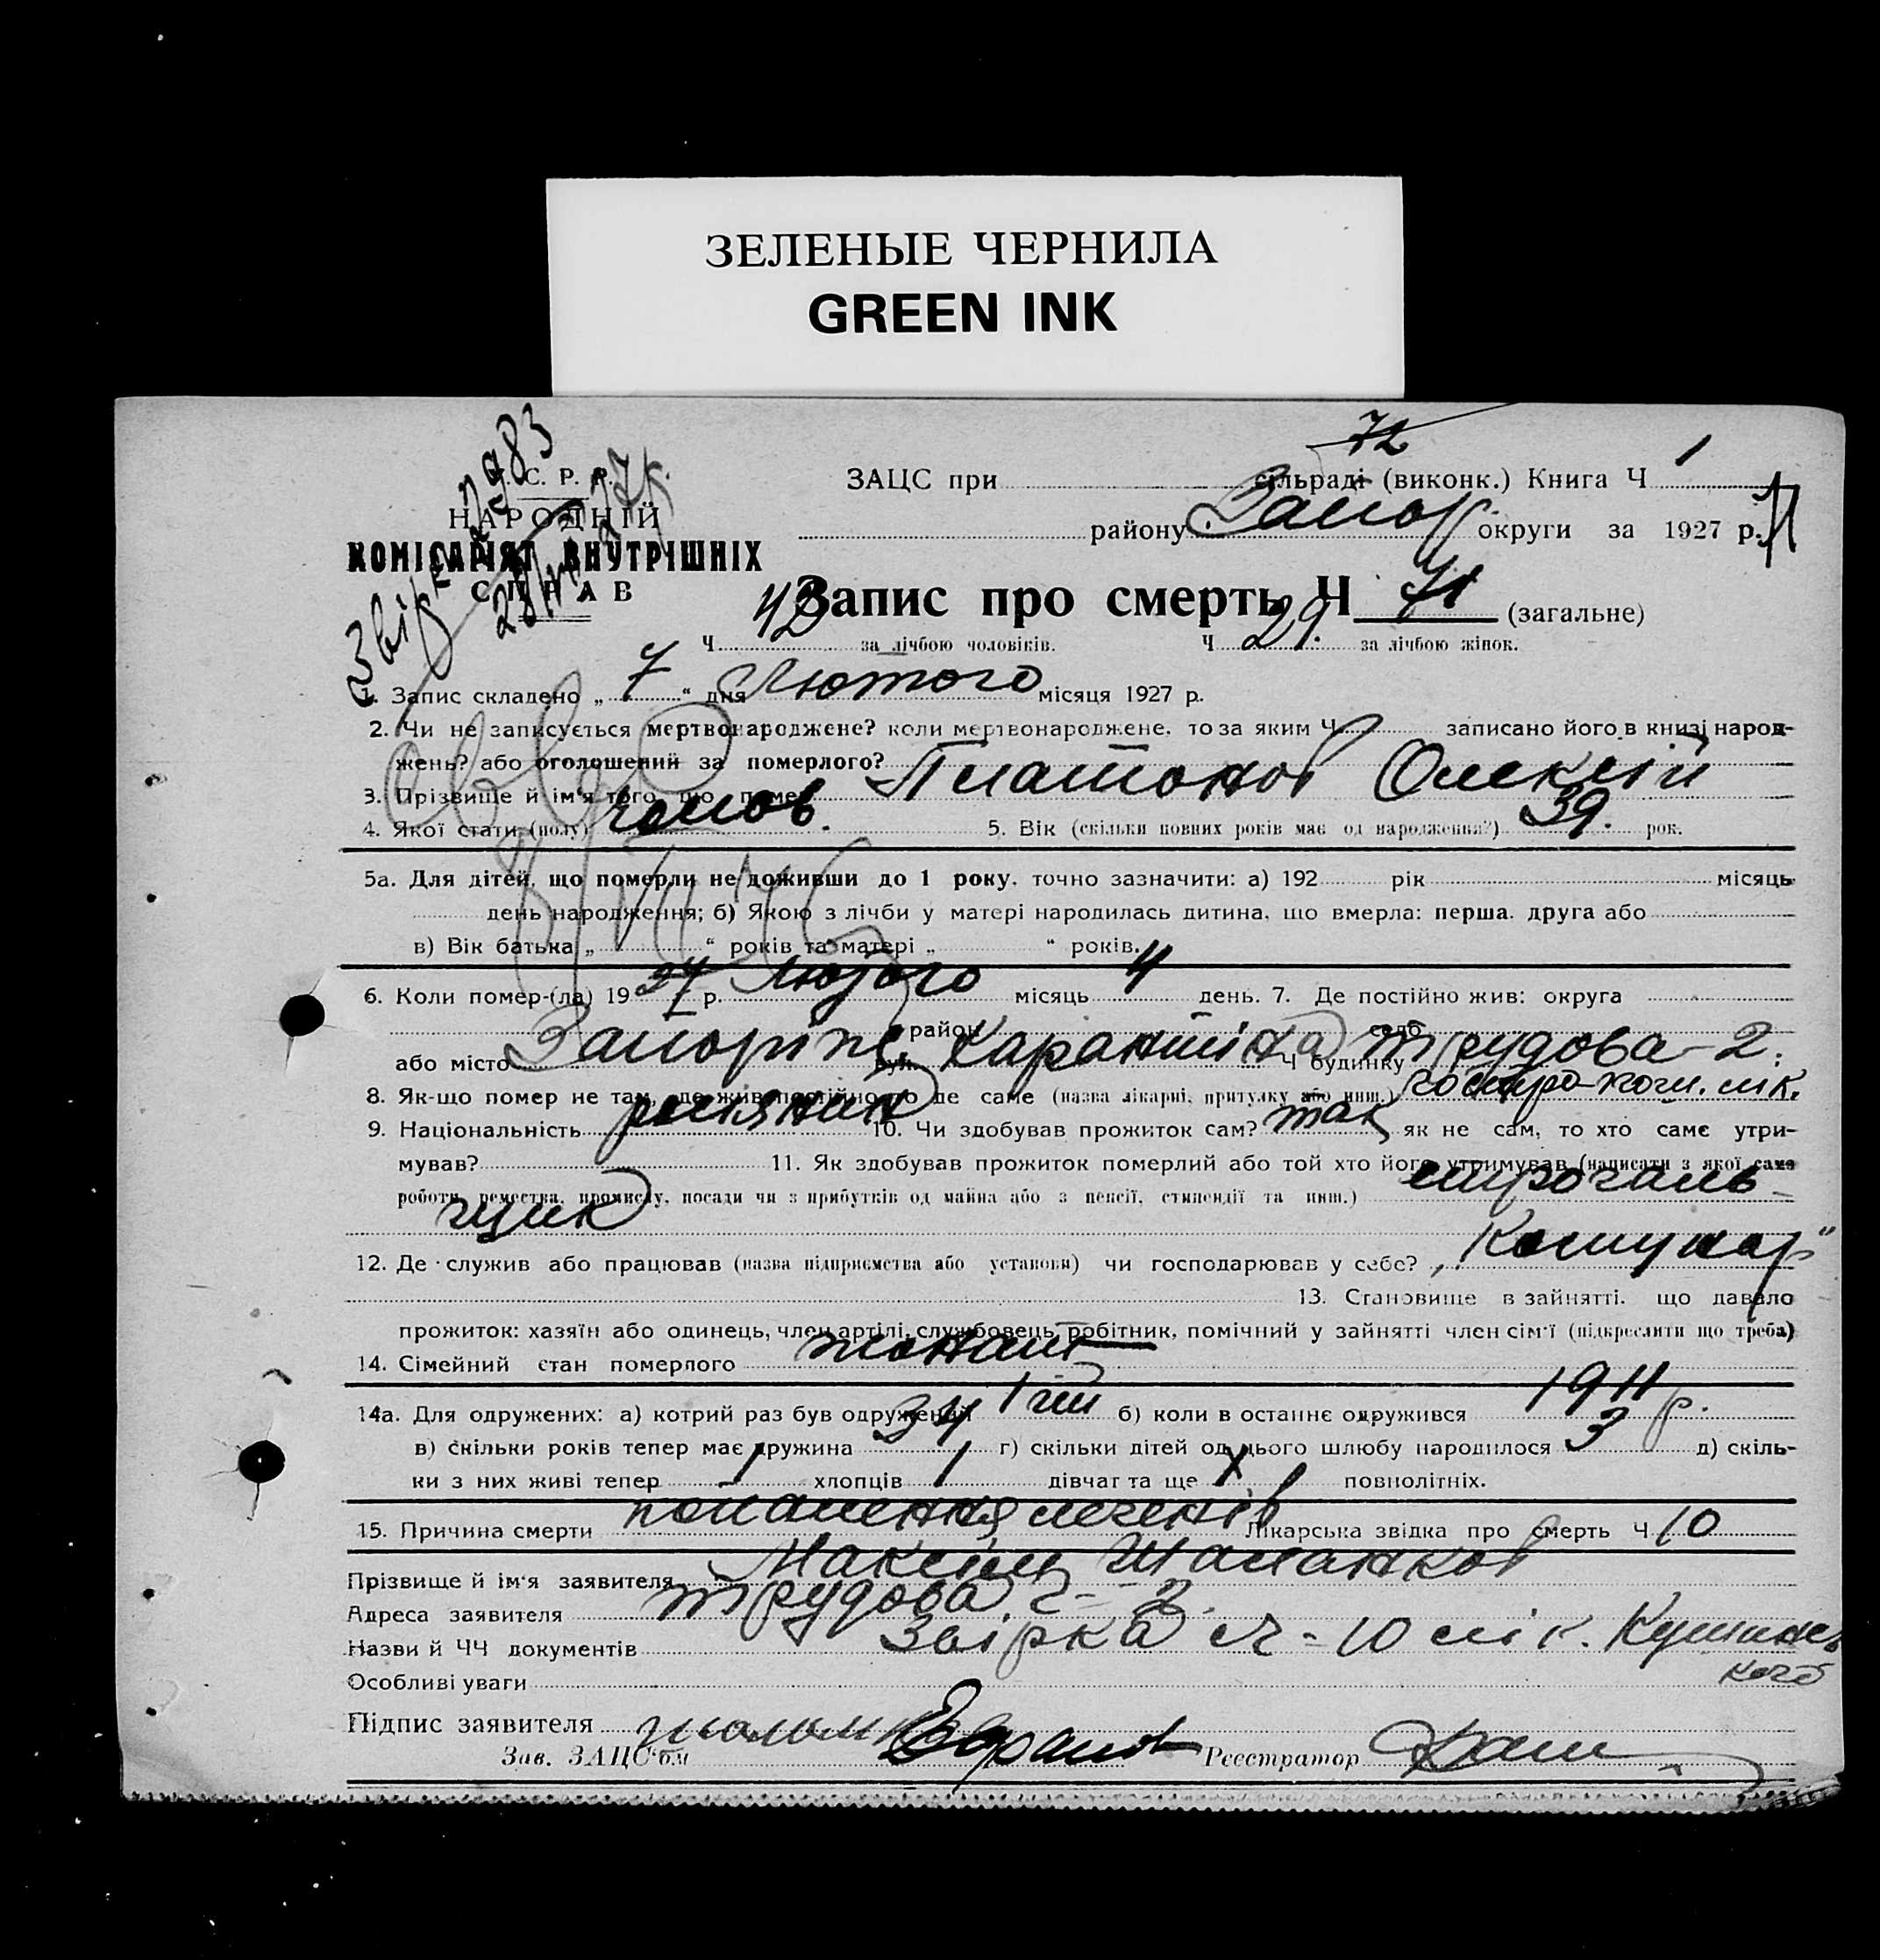 ЗЕЛЕНЫЕ ЧЕРНИЛА
GREEN INK
72
У. С. Р. Р.
НАРОДНІЙ
КОМІСАРІЯТ ВНУТРІШНІХ
СПРАВ
ЗАЦС при сільраді (виконк.) Книга Ч 1
району Запор. округи за 1927 р.
Запис про смерть Ч 71 (загальне)
Ч 42 за лічбою чоловіків. Ч 29. за лічбою жінок.
1. Запис складено „ 7 “ дня Лютого місяця 1927 р.
2. Чи не записується мертвонароджене? коли мертвонароджене, то за яким Ч записано його в книзі народ-
жень? або оголошений за померлого?
3. Прізвище й ім'я того, що помер Платонов Олексій
4. Якої стати (полу) чолов. 5. Вік (скільки повних років має од народження?) 39. рок.
5а. Для дітей, що померли не доживши до 1 року, точно зазначити: а) 192 рік місяць
день народження; б) Якою з лічби у матері народилась дитина, що вмерла: перша, друга або
в) Вік батька „ “ років та матері „ “ років.
6. Коли помер-(ла) 19 27 р. Лютого місяць 4 день. 7. Де постійно жив: округа
район село
або місто Запоріж. вул. Ч будинку Трудова-2.
8. Як-що помер не там, де жив постійно, то де саме (назва лікарні, притулку або инш.)
9. Національність росіянин 10. Чи здобував прожиток сам? так як не сам, то хто саме утри-
мував? 11. Як здобував прожиток померлий або той хто його утримував (написати з якої само
роботи, ремества, промислу, посади чи з прибутків од майна або з пенсії, стипендії та инш.) строгаль-
щик
12. Де служив або працював (назва підприємства або установи) чи господарював у себе? „Комунар“
13. Становище в зайнятті, що давало
прожиток: хазяїн або одинець, член артілі, службовець, робітник, помічний у зайнятті член сім'ї (підкреслити що треба)
14. Сімейний стан померлого жонат
14а. Для одружених: а) котрий раз був одружений 1 б) коли в останнє одружився 1911 р.
в) скільки років тепер має дружина 34 г) скільки дітей од цього шлюбу народилося 3 д) скіль-
ки з них живі тепер 1 хлопців 1 дівчат та ще X повнолітніх.
15. Причина смерти Лікарська звідка про смерть Ч 10
Прізвище й ім'я заявителя Максім
Адреса заявителя Трудова ч-2.
Назви й ЧЧ документів ч-10 лік.
Особливі уваги
Підпис заявителя
Зав. ЗАЦС'ом Реєстратор